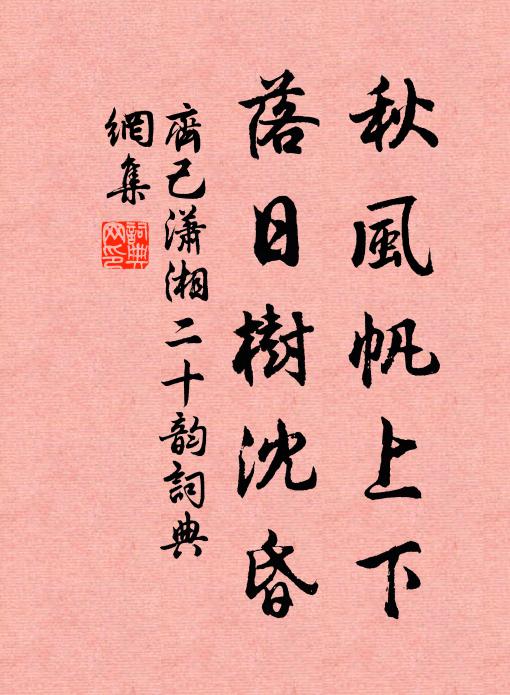 秋風帆上下
落日樹沈昏
齊己瀟湘二十韵詞典
網集
詞典
网印